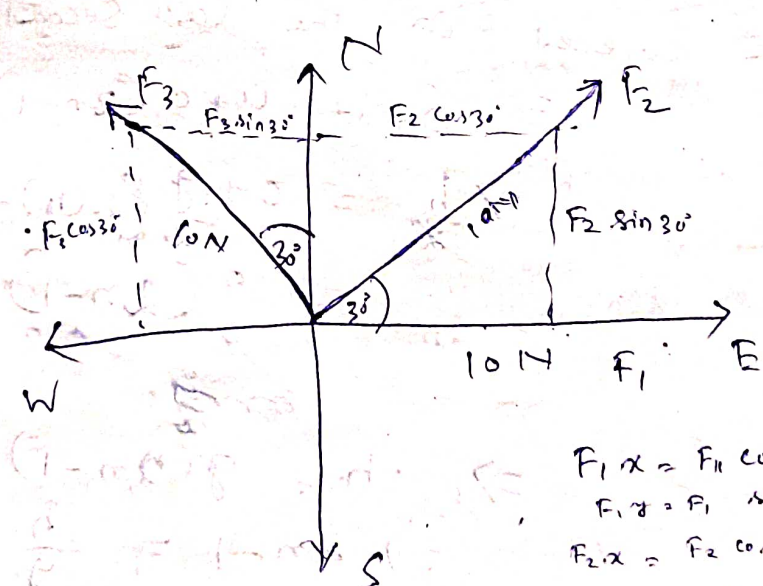 N
F3
F2
F3 sin30°
F2 Cos30°
F3 Cos30°
10N
30°
F2 sin 30°
30°
10 N
F1
E
W
F1 x = F1 co
F1 y = F1 s
F2.x = F2 co
S